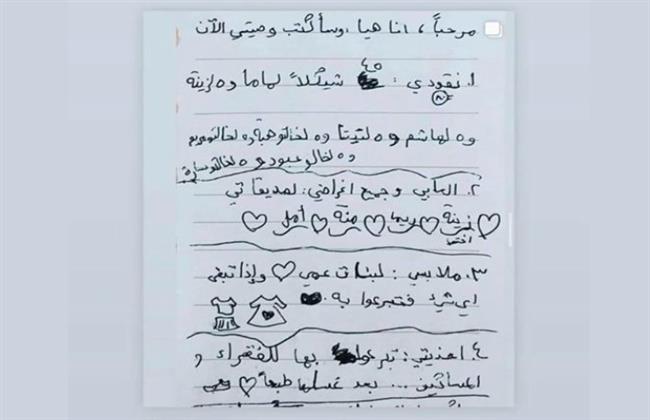 مرحباً ، انا هيا ، وسأكتب وصيتي الآن
١. نقودي : ٤٥ شيكلاً لماما و ٥ لزينة
و ٥ لهاشم و ٥ لتيتا و ٥ لخالتو هبة و ٥ لخالتو مريم
و ٥ لخالو عبود و ٥ لخالتو سارة
٢. العابي و جميع اغراضي : لصديقاتي
زينة ريما منة أمل
اختي
٣. ملابسي : لبنات عمي وإذا تبقى
اي شيء فتبرعوا به
٤ احذيتي : تبرعوا بها للفقراء و
المساكين ... بعد غسلها طبعاً